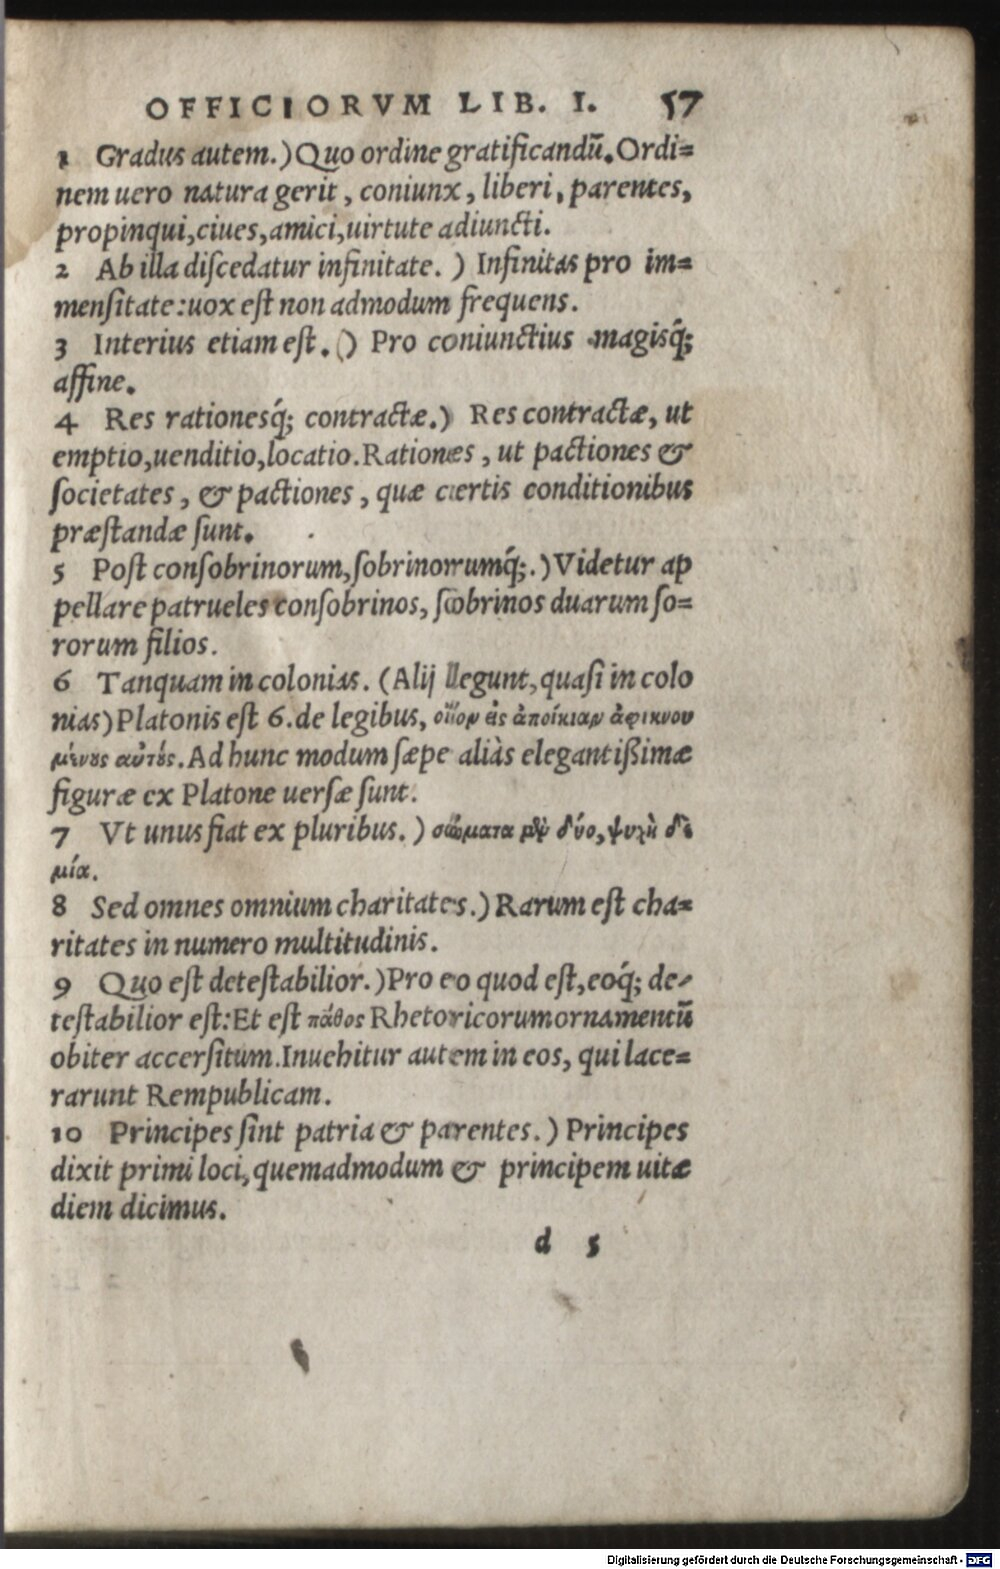 OFFICIORVM LIB. I. 57
1 Gradus autem.) Quo ordine gratificandũ. Ordi=
nem uero natura gerit, coniunx, liberi, parentes,
propinqui, ciues, amici, uirtute adiuncti.
2 Ab illa diſcedatur infinitate.) Infinitas pro im=
menſitate: uox eſt non admodum frequens.
3 Interius etiam eſt.() Pro coniunctius magisq́;
affine.
4 Res rationesq́; contractæ.) Res contractæ, ut
emptio, uenditio, locatio. Rationes, ut pactiones &
ſocietates, & pactiones, quæ certis conditionibus
præſtandæ ſunt.
5 Poſt conſobrinorum, ſobrinorumq́;.) Videtur ap
pellare patrueles conſobrinos, ſobrinos duarum ſo=
rorum filios.
6 Tanquam in colonias. (Alij legunt, quaſi in colo
nias) Platonis eſt 6. de legibus, οἷον εἰς ἀποίκιαν ἀφικνου
μένους αὐτούς. Ad hunc modum ſæpe aliàs elegantißimæ
figuræ ex Platone uerſæ ſunt.
7 Vt unus fiat ex pluribus.) σώματα μὲν δύο, ψυχὴ δὲ
μία.
8 Sed omnes omnium charitates.) Rarum eſt cha=
ritates in numero multitudinis.
9 Quo eſt deteſtabilior.) Pro eo quod eſt, eoq́; de=
teſtabilior eſt: Et eſt πάθος Rhetoricorum ornamentũ
obiter accerſitum. Inuehitur autem in eos, qui lace=
rarunt Rempublicam.
10 Principes ſint patria & parentes.) Principes
dixit primi loci, quemadmodum & principem uitæ
diem dicimus.
d 5
Digitalisierung gefördert durch die Deutsche Forschungsgemeinschaft - DFG